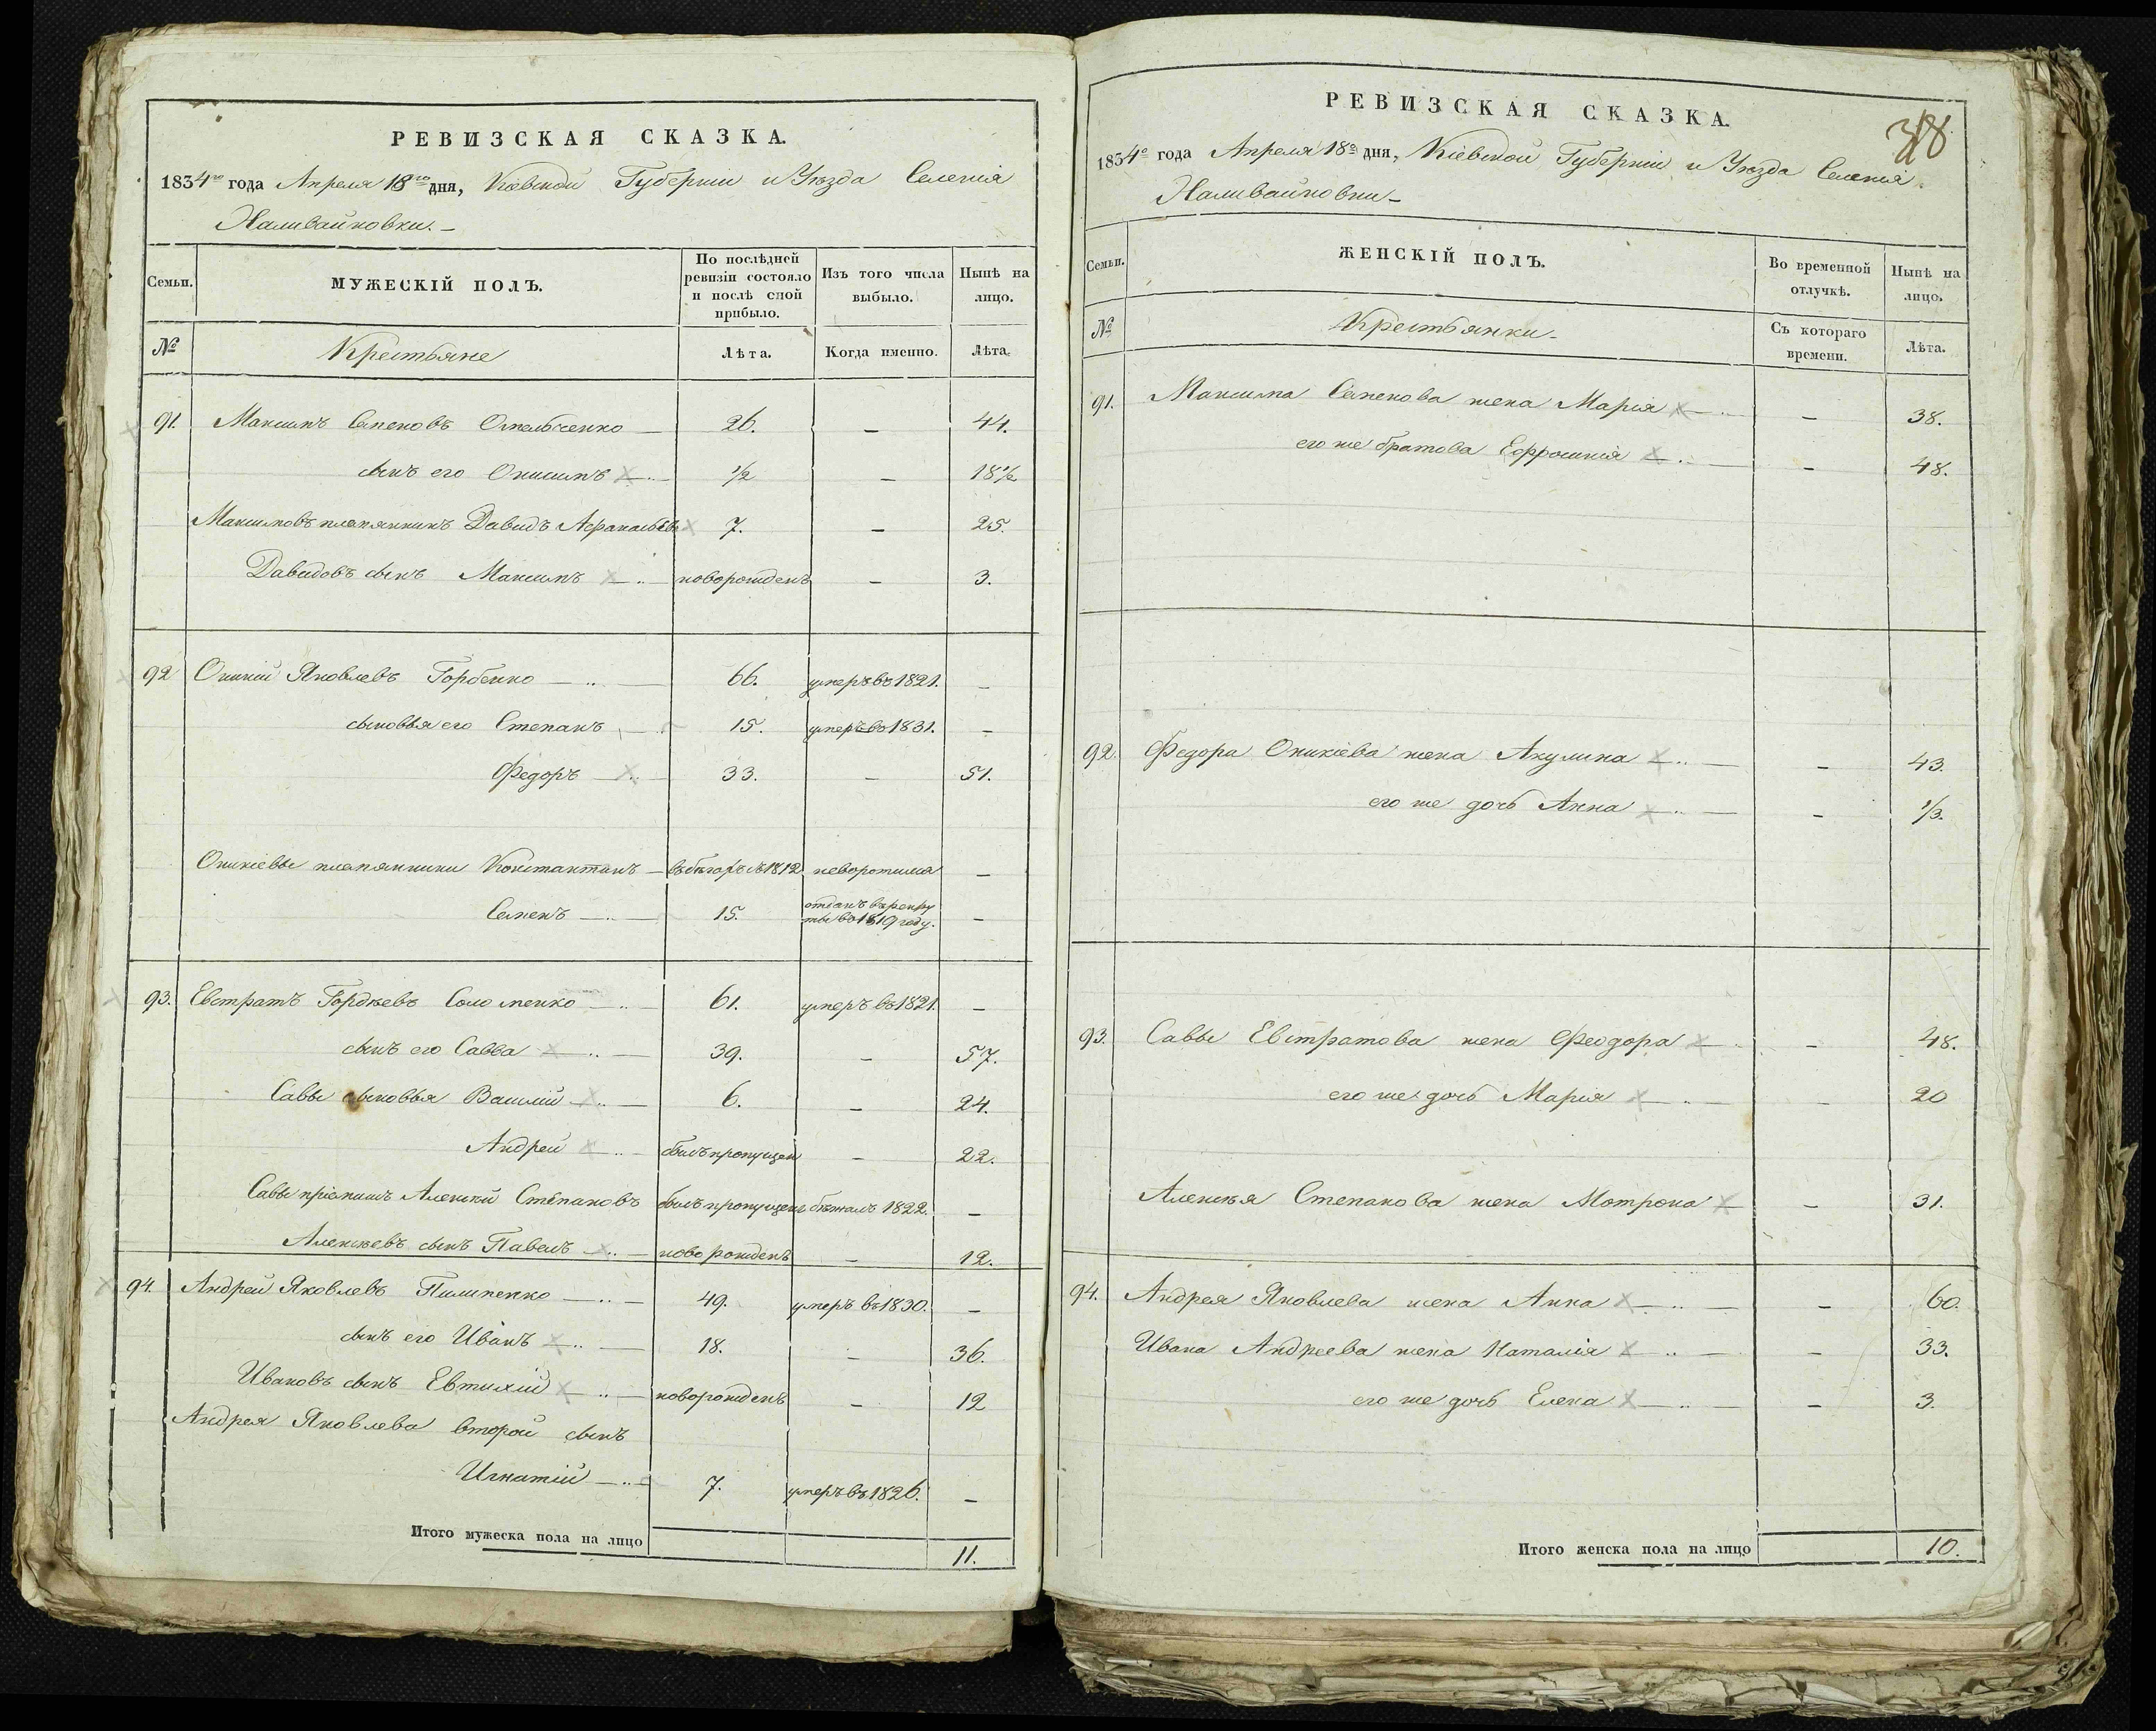 РЕВИЗСКАЯ СКАЗКА.
1834го года Апреля 18го дня, Кіевской Губерніи и Уѣзда Селенія
Наливайковки.—
Семьи. МУЖЕСКІЙ ПОЛЪ. По послѣдней ревизіи состояло и послѣ оной прибыло. Изъ того числа выбыло. Нынѣ на лицо.
№ Крестьяне Лѣта. Когда именно. Лѣта.
91. Максимъ Семеновъ Омельченко — 26. — 44.
сынъ его Онисимъ — 1/2 — 18 1/2
Максимовъ племянникъ Давидъ Афанасьевъ 7. — 25.
Давидовъ сынъ Максимъ — новорожденъ — 3.
92 Оникій Яковлевъ Горбенко — 66. умеръ въ 1821. —
сыновья его Степанъ — 15. умеръ въ 1831. —
Федоръ — 33. — 51.
Оникіевы племянники Константинъ — въ бѣгахъ съ 1812 неворотился —
Семенъ — 15. отданъ въ рекру
ты въ 1819 году. —
93. Евстратъ Гордѣевъ Соломенко — 61. умеръ въ 1821. —
сынъ его Савва — 39. — 57.
Саввы сыновья Василій — 6. — 24.
Андрей — былъ пропущен — 22.
Саввы пріемышъ Алексѣй Степановъ былъ пропущенъ бѣжалъ 1822. —
Алексѣевъ сынъ Павелъ — новорожденъ — 12.
94. Андрей Яковлевъ Пилипенко — 49. умеръ въ 1830. —
сынъ его Иванъ — 18. — 36.
Ивановъ сынъ Евтихій — новорожденъ — 12
Андрея Яковлева второй сынъ
Игнатій — 7. умеръ въ 1826. —
Итого мужеска пола на лицо 11.
РЕВИЗСКАЯ СКАЗКА.
318
1834о года Апреля 18го дня, Кіевской Губерніи и Уѣзда Селенія
Наливайковки—
Семьи. ЖЕНСКІЙ ПОЛЪ. Во временной отлучкѣ. Нынѣ на лицо.
№ Крестьянки— Съ котораго времени. Лѣта.
91. Максима Семенова жена Марія — — 38.
его же братова Ефросинія — — 48.
92. Федора Оникіева жена Акулина — — 43.
его же дочь Анна — — 1/3.
93. Саввы Евстратова жена Феодора — — 48.
его же дочь Марія — — 20
Алексѣя Степанова жена Мотрона — — 31.
94. Андрея Яковлева жена Анна — — 60.
Ивана Андреева жена Наталія — — 33.
его же дочь Елена — — 3.
Итого женска пола на лицо 10.